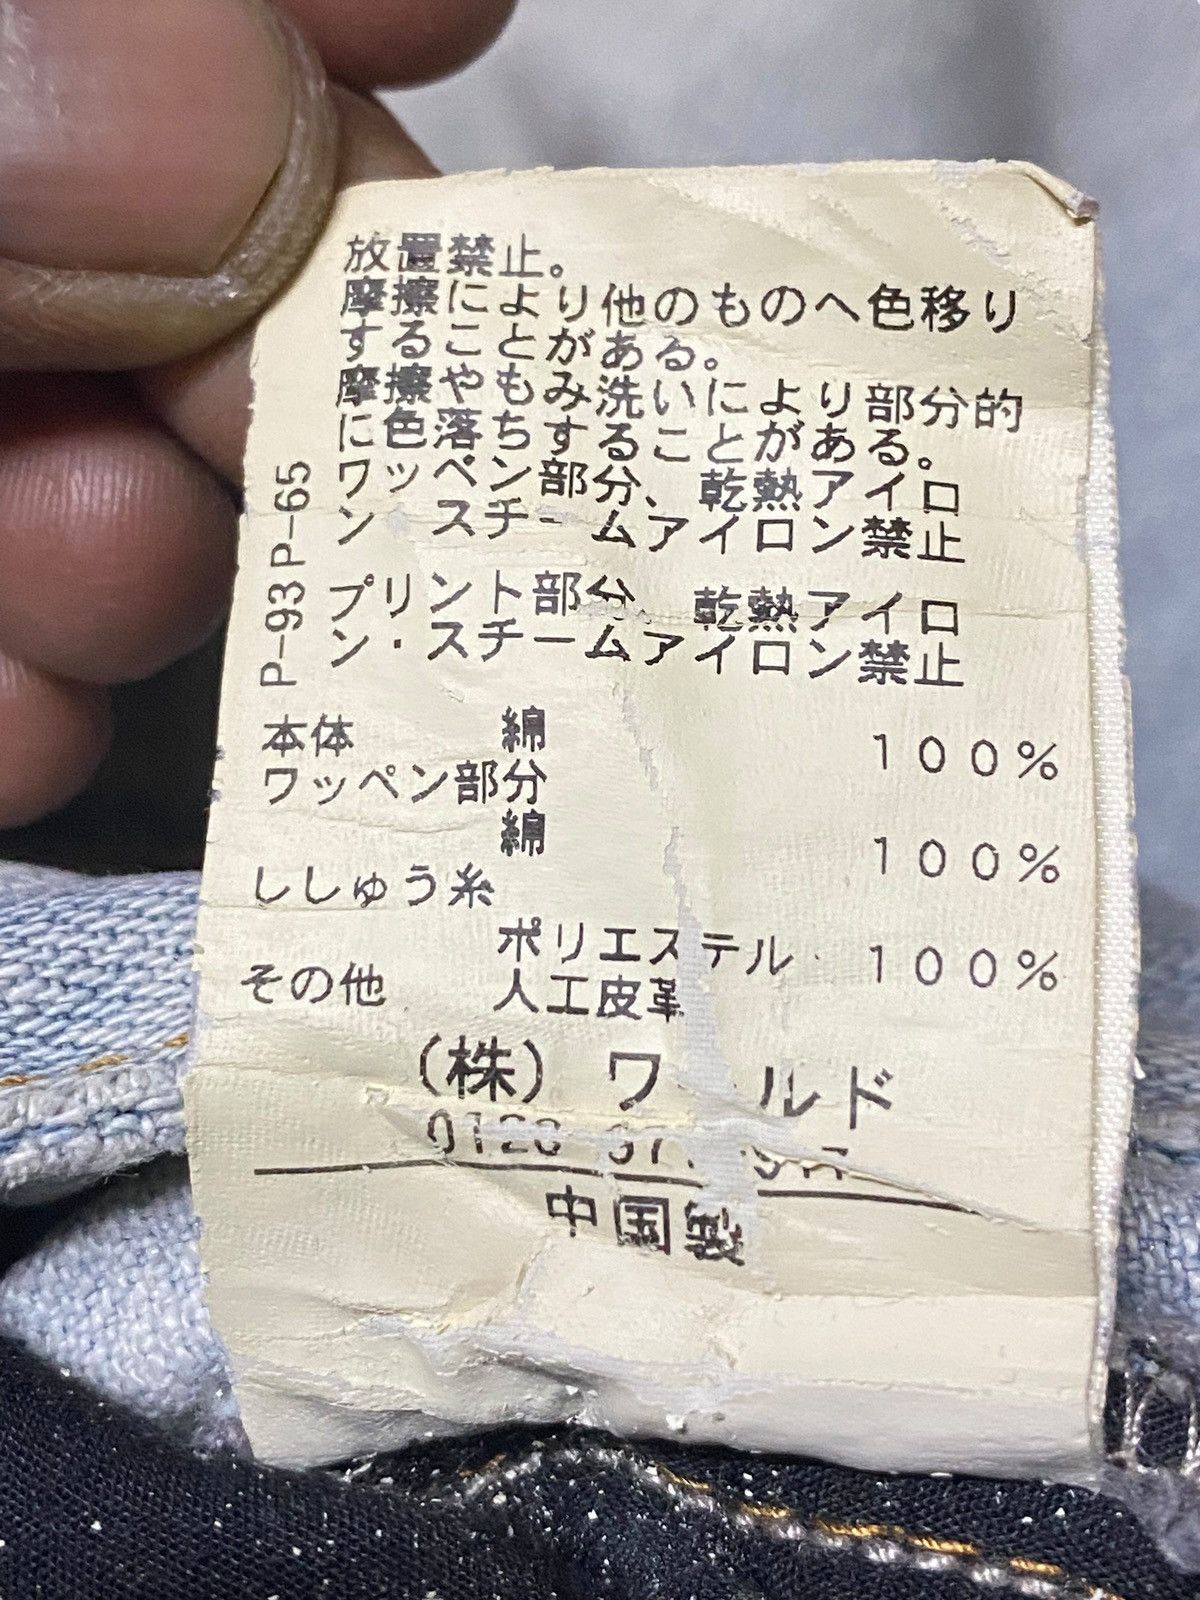 放置禁止。
摩擦により他のものへ色移り
することがある。
摩擦やもみ洗いにより部分的
に色落ちすることがある。
ワッペン部分、乾熱アイロ
ン スチームアイロン禁止
プリント部分、乾熱アイロ
ン・スチームアイロン禁止
P-93P-65
本体 綿 100%
ワッペン部分
綿 100%
ししゅう糸
ポリエステル 100%
その他 人工皮革
(株) ワールド
中国製